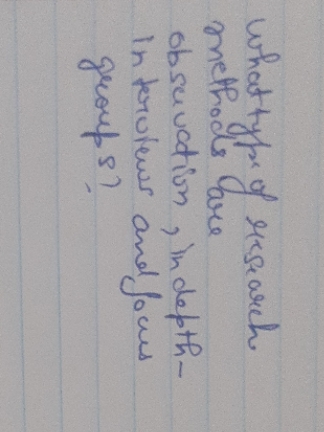 what type of research
methods are
observation, indepth-
interviews and focus
groups?